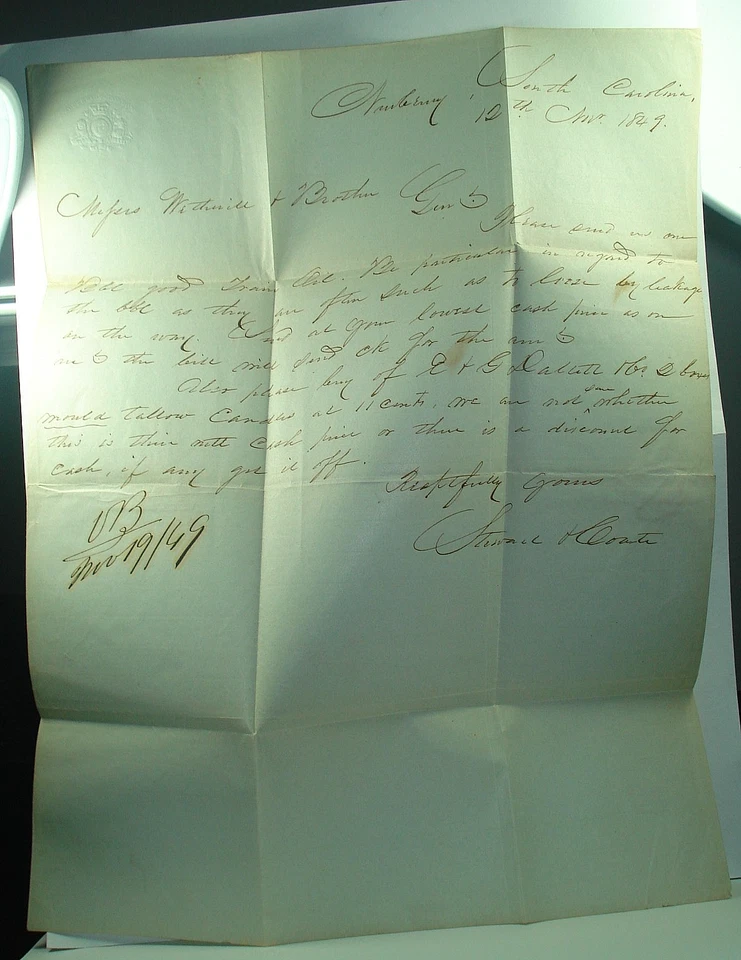 South Carolina,
Newberry 12th Novr. 1849.
Messrs Wetherill & Brother Gents
Please send us one
bbl good Train Oil. Be particular in regard to
the bbl as they are often such as to loose by leakage
on the way. Send at your lowest cash price as on
the bill will send ck for the amt
Also please buy of E & G Dallett & Co. 2 boxes
mould tallow Candles at 11 cents. we are not sure whether
this is their nett cash price or there is a discount for
cash, if any get it off.
Respectfully yours
Nov 19/49